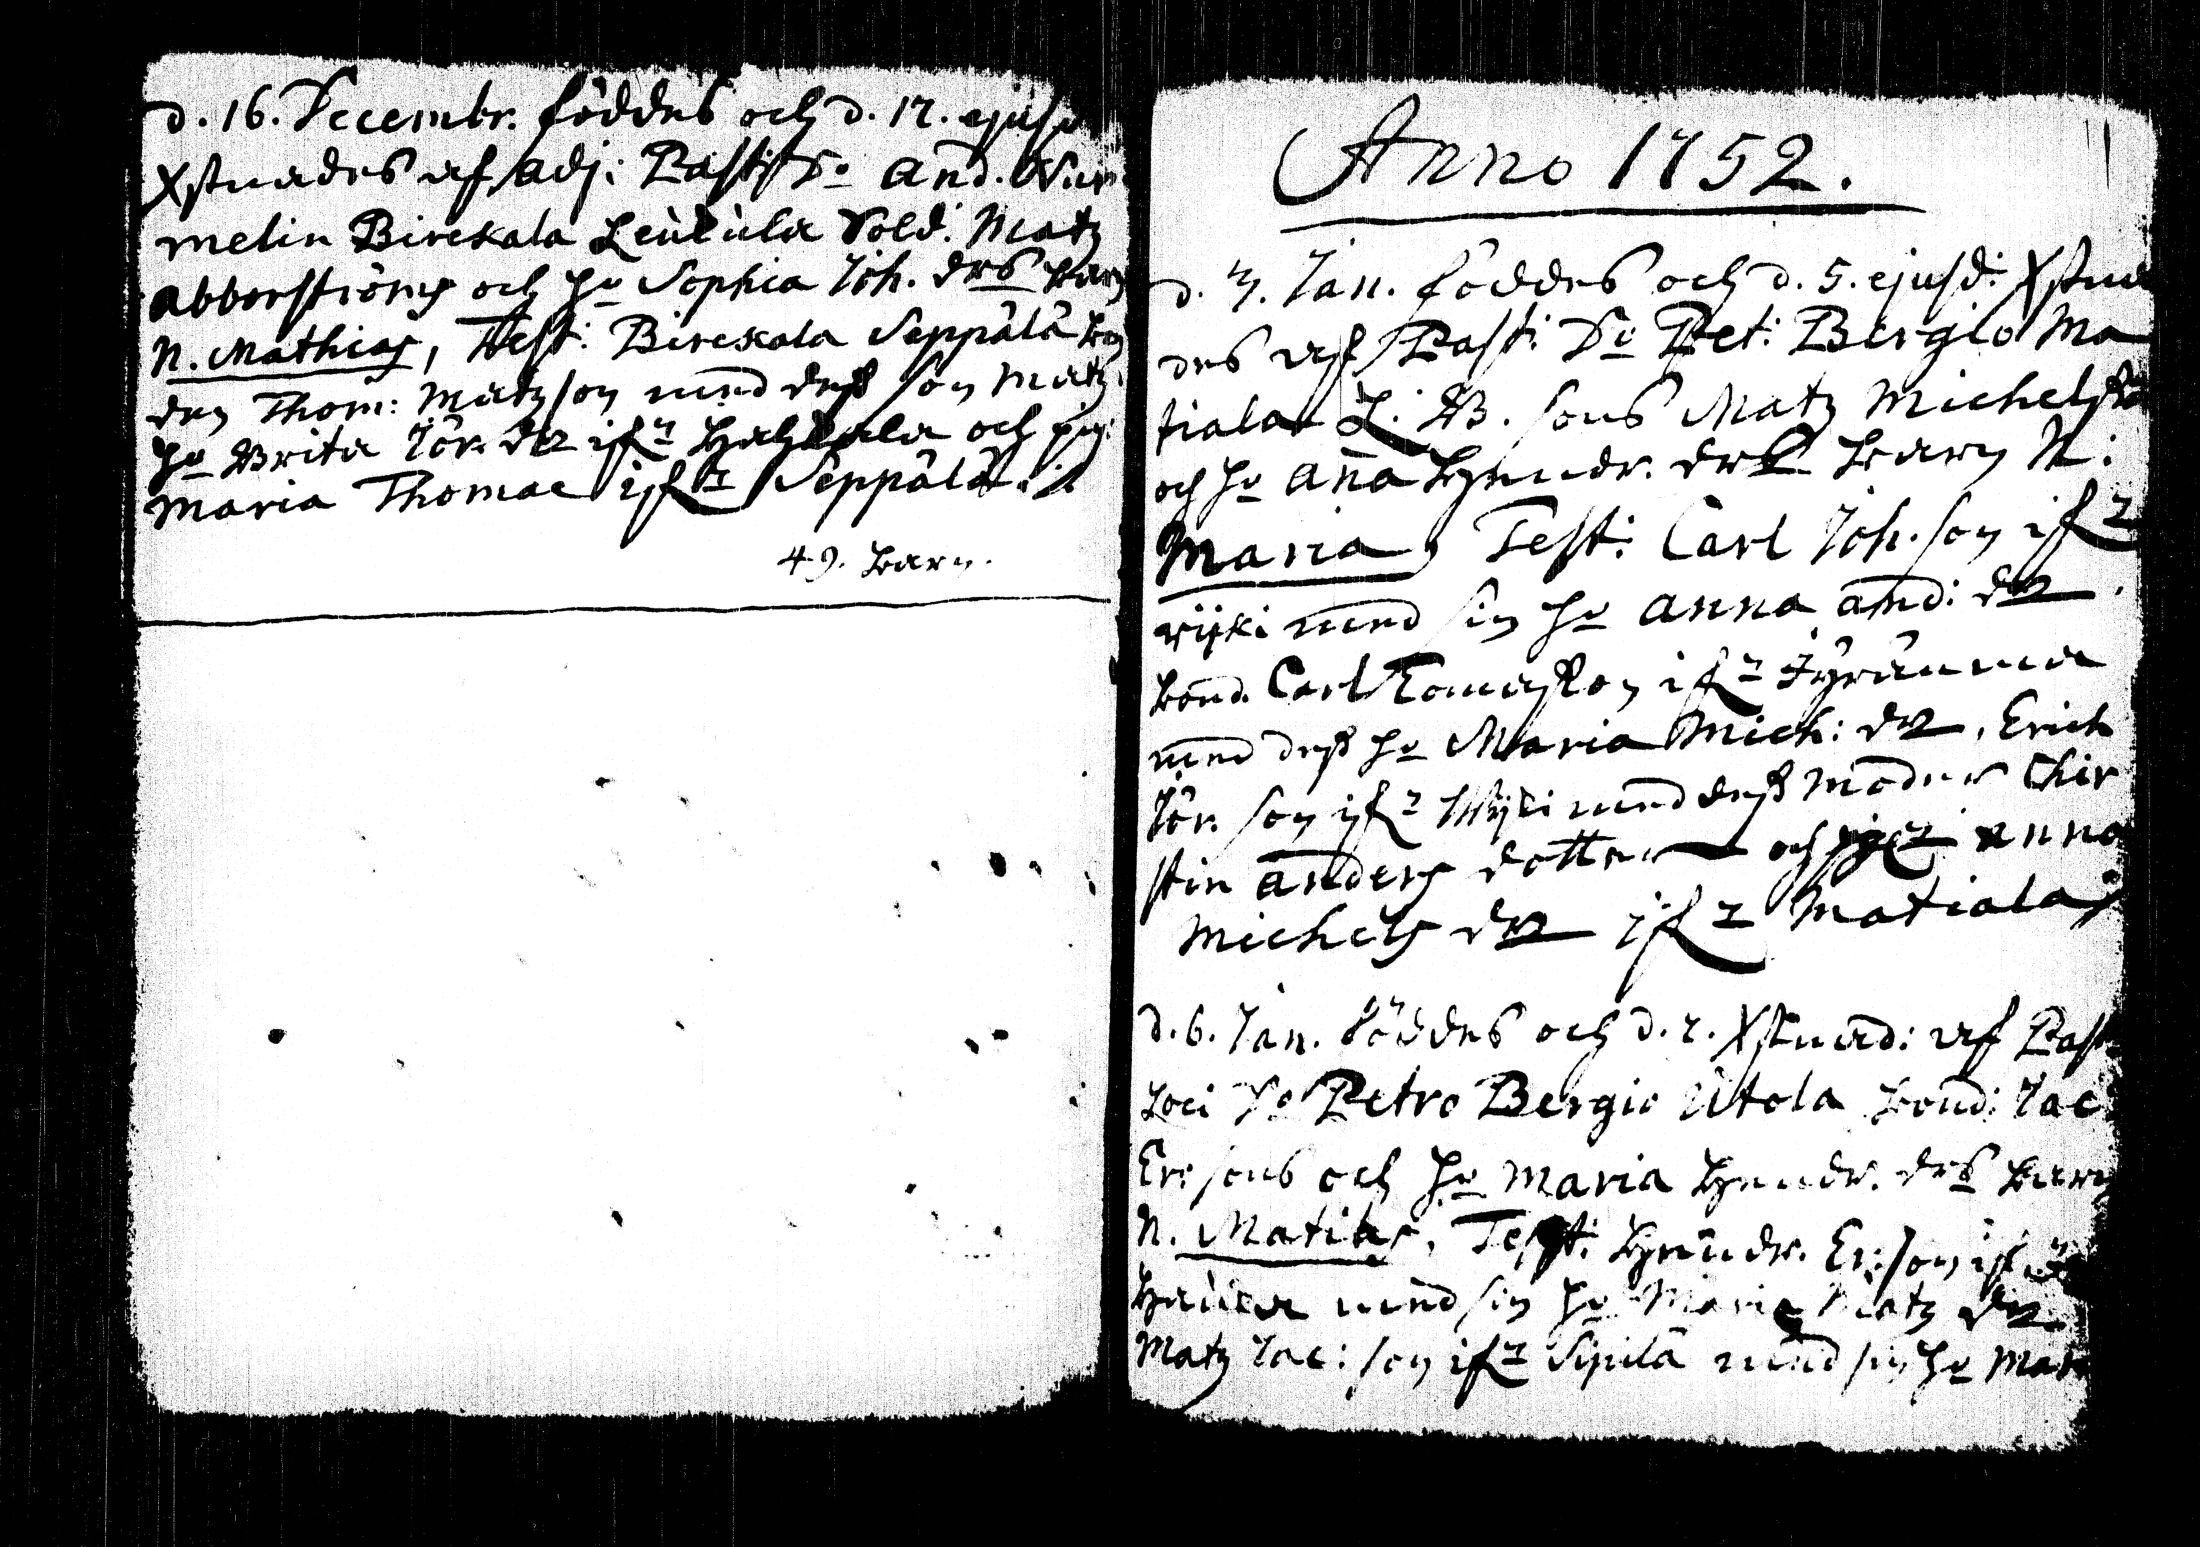 d. 16. Decembr. föddes och d. 17. ejusd
Xstnades af Adj: Past: Do And. Wur
melin Birckala Leukula Sold: Matz
Abborströms och Hu Sophia Joh. drs barn
N. Mathias, Test: Birckala Seppälä bon
den Thom: Matzson med dess son Matz.
Hu Brita Jör. dr ifr och pig:
Maria Thomae ifr Seppälä.
49. barn.
Anno 1752.
d. 3. Jan. föddes och d. 5. ejusd: Xstna
des af Past: Do Pet: Bergio Ma
tiala L: B. sons Matz Michelss
och Hu Anna Hindr. drs barn N:
Maria, Test: Carl Joh. son ifr
rijki med sin Hu Anna And: dr.
bond. Carl Tomasson ifr
med dess Hu Maria Mich: dr, Erich
Jör. son ifr med dess Moder Chir
stin Anders dotter och pig: Anna
Michels dr ifr Matiala
d. 6. Jan. föddes och d. 7. Xstnad: af Past.
Loci Do Petro Bergio Utola bond: Jac
Er: sons och Hu Maria Hindr. drs barn
N. Matias, Test: Hindr. Er: son ifr
med sin Hu Maria Matz dr.
Matz Jac: son ifr Sipilä med sin Hu Mar